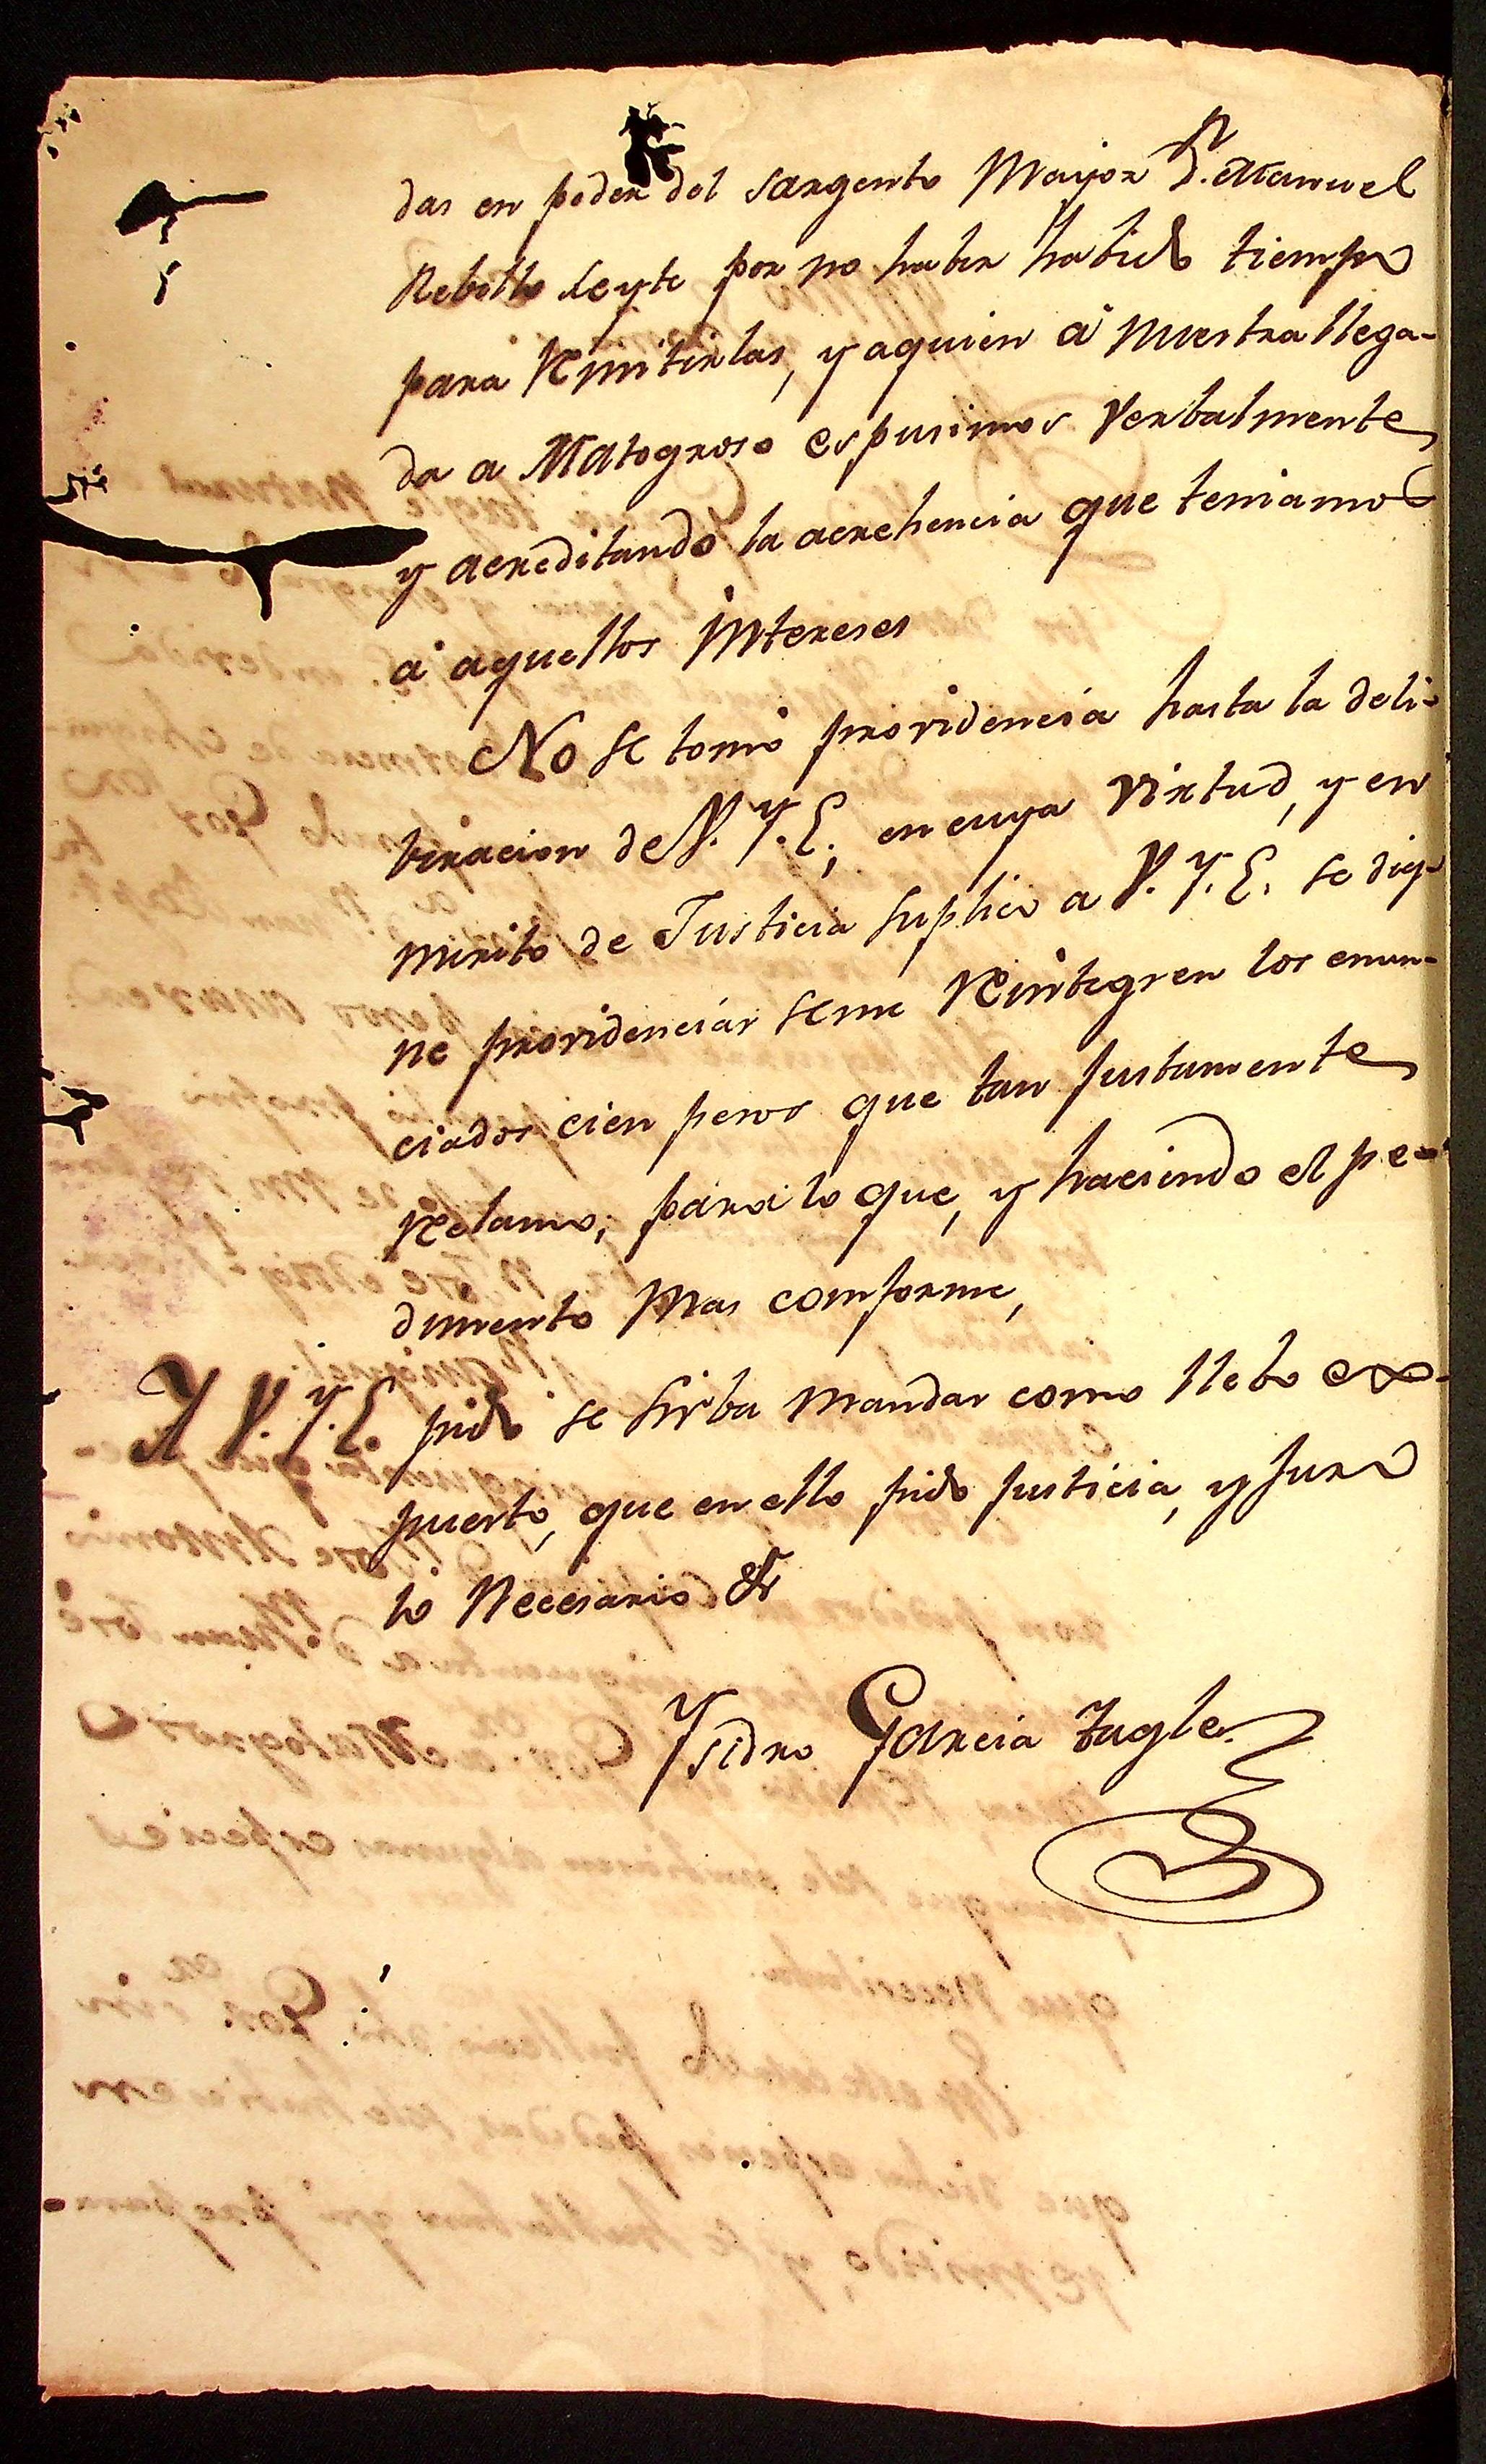 das en poder del Sargento Mayor Dn. Manuel
Rebollo Leyte por no haber habido tiempo
para Remitirlas, y aquien á Nuestra llega-
da a Matogroso espusimos Verbalmente
y acreditando la acrehencia que teniamos
á aquellos Intereses
No se tomó providencia hasta la deli-
beracion de V. Y. E., en cuya Virtud, y en
mirito de Justicia Suplico a V. Y. E. se dig-
ne providenciar seme Reintegren los enun-
ciados cien pesos que tan justamente
Reclamo, para lo que, y haciendo el pe-
dimento Mas comforme,
A V. Y. E. pido se Sirba Mandar como llebo ex-
puesto, que en ello pido justicia, y juro
lo Necesario &
Ysidro Garcia Tagle